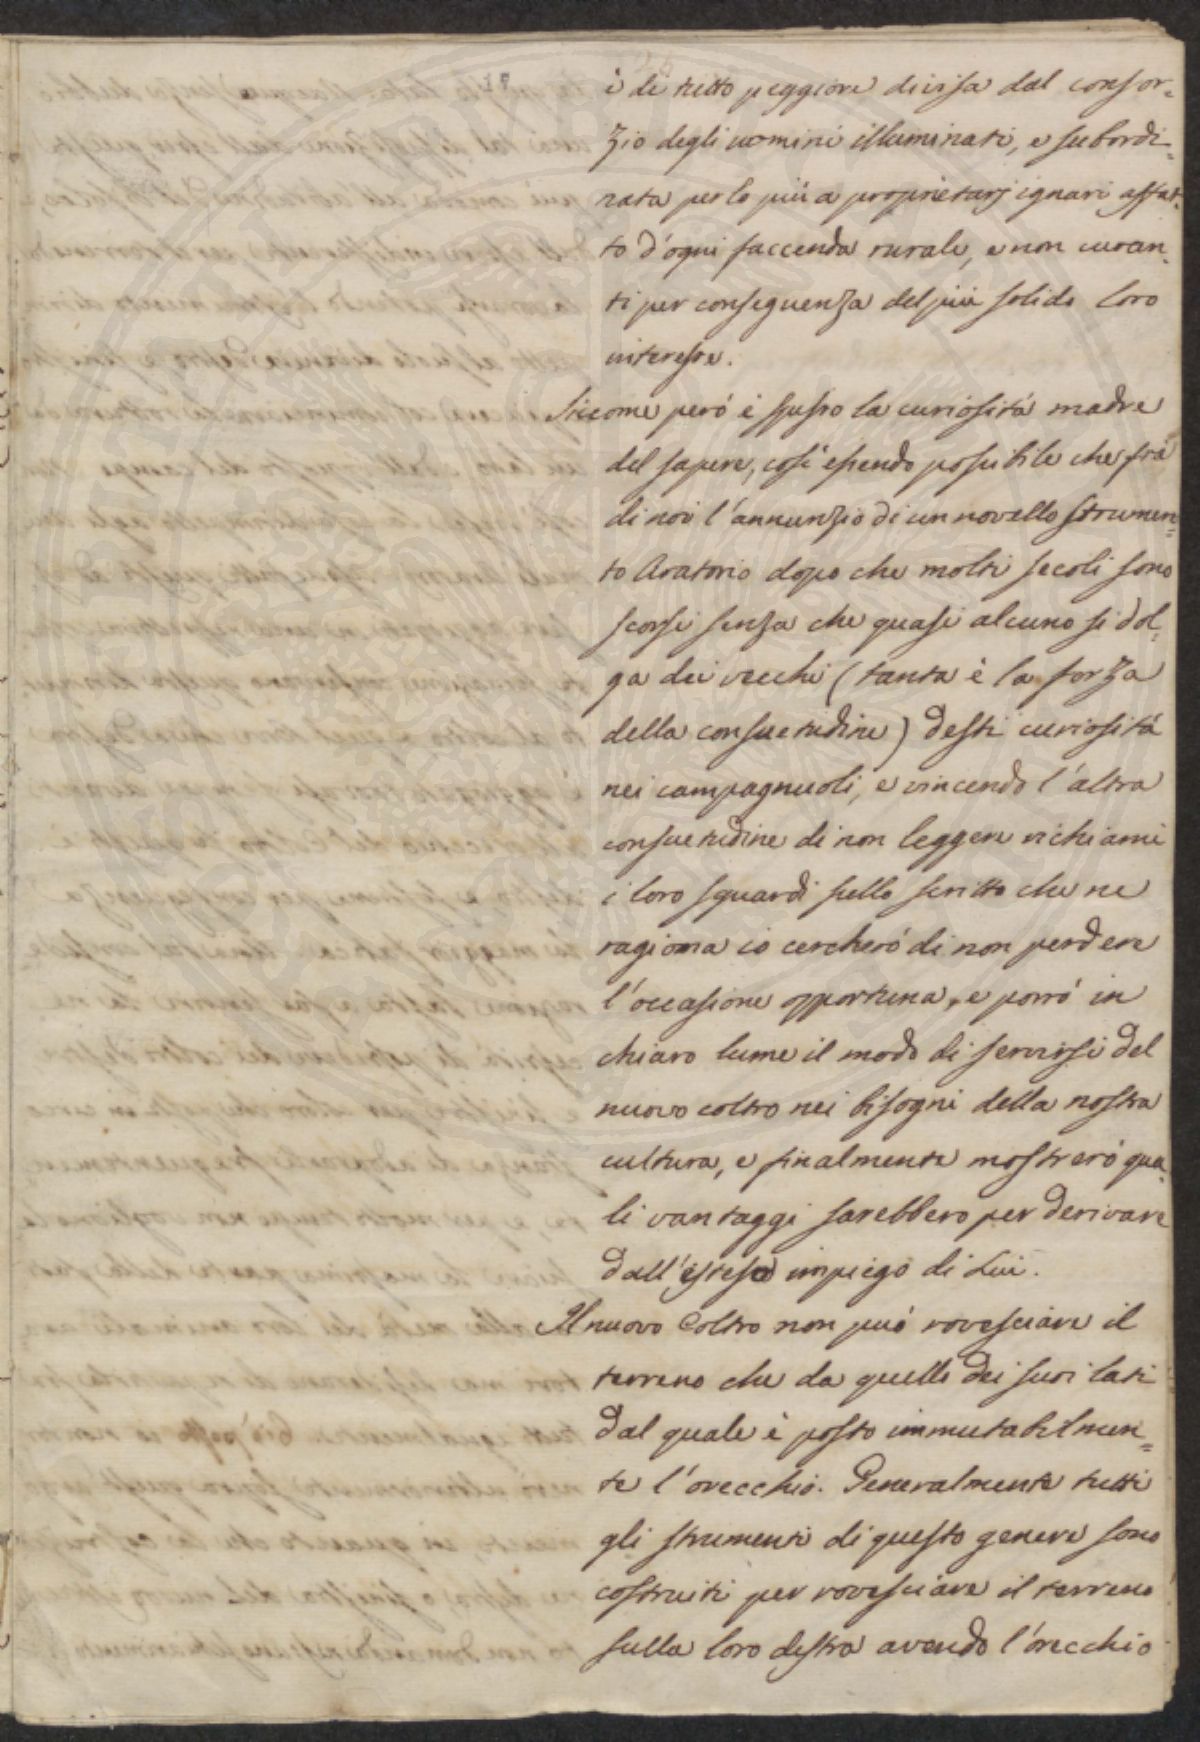 è di tutto peggiore divisa dal consor-
zio degli uomini illuminati, e subordi-
nata per lo più a proprietarj ignari affat-
to d'ogni faccenda rurale, e non curan-
ti per conseguenza del più solido loro
interesse.
Siccome però è spesso la curiosità madre
del sapere, così essendo possibile che frà
di noi l'annunzio di un novello strumen=
to Aratorio dopo che molti secoli sono
scorsi senza che quasi alcuno si dol-
ga dei vecchi (tanta è la forza
della consuetudine) desti curiosità
nei campagnuoli, e vincendo l'altra
consuetudine di non leggere richiami
i loro sguardi sullo scritto che ne
ragiona io cercherò di non perdere
l'occasione opportuna, e porrò in
chiaro lume il modo di servirsi del
nuovo coltro nei bisogni della nostra
cultura, e finalmente mostrerò qua-
li vantaggi sarebbero per derivare
dall'esteso impiego di Lui.
Il nuovo Coltro non può rovesciare il
terreno che da quello dei suoi lati
dal quale è posto immutabilmen=
te l'orecchio. Generalmente tutti
gli strumenti di questo genere sono
costruiti per rovesciare il terreno
sulla loro destra avendo l'orecchio